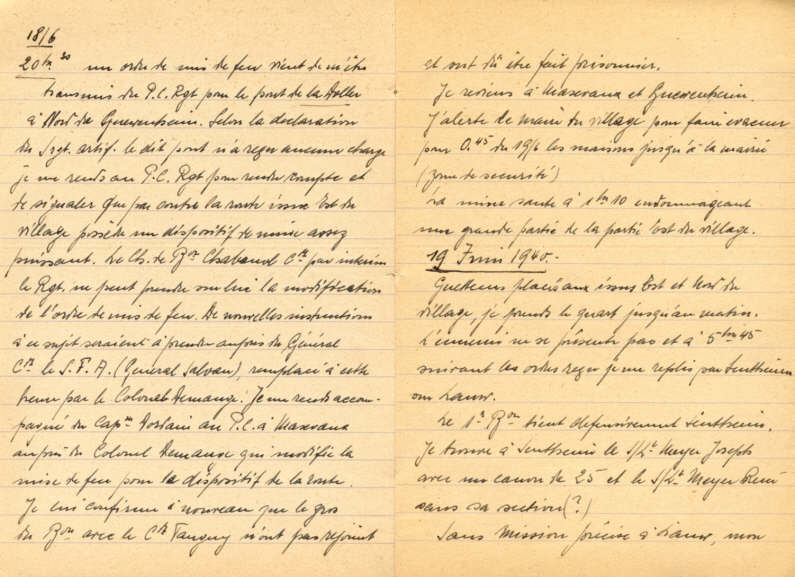 18/6
20h.30 un ordre de mis de feu vient de m'être
transmis du P.C. Rgt pour le pont de la Doller
à Nord de Guewenheim. Selon la déclaration
du Sgt. artif. le dit pont n'a reçu aucune charge
je me rends au P.C. Rgt pour rendre compte et
de signaler que par contre la route issue Est du
village possède un dispositif de mise assez
puissant. Le Ch. de Bon Chabaud Ct par intérim
le Rgt, ne peut prendre sur lui la modification
de l'ordre de mis de feu. De nouvelles instructions
à ce sujet seraient à prendre auprès du Général
Ct le S.F.A. (General Salvan), remplacé à cette
heure par le Colonel Demange. Je me rends accom-
pagné du Capne au P.C. à Masevaux
auprès du Colonel Demange qui modifie la
mise de feu pour le dispositif de la route.
Je lui confirme à nouveau que le gros
du Bon avec le Ct Tanguy n'ont pas rejoint
et ont dû être fait prisonnier.
Je reviens à Masevaux et Guewenheim.
J'alerte le maire du village pour faire évacuer
pour 0.45 du 19/6 les maisons jusqu'à la mairie
(zone de securité)
La mine saute à 1h10 endommageant
une grande partie de la partie Est du village.
19 Juin 1940.-
Guetteurs placés aux issues Est et Nord du
village, je prends le quart jusqu'au matin.
L'ennemi ne se présente pas et à 5h45
suivant les ordres reçus je me replis par Sentheim
sur Lauw.
Le 1er Bon tient defensivement Sentheim.
Je trouve à Sentheim le S/Lt Meyer Joseph
avec un canon de 25 et le S/Lt Meyer René
sans sa section (?)
Sans mission précise à Lauw, mon